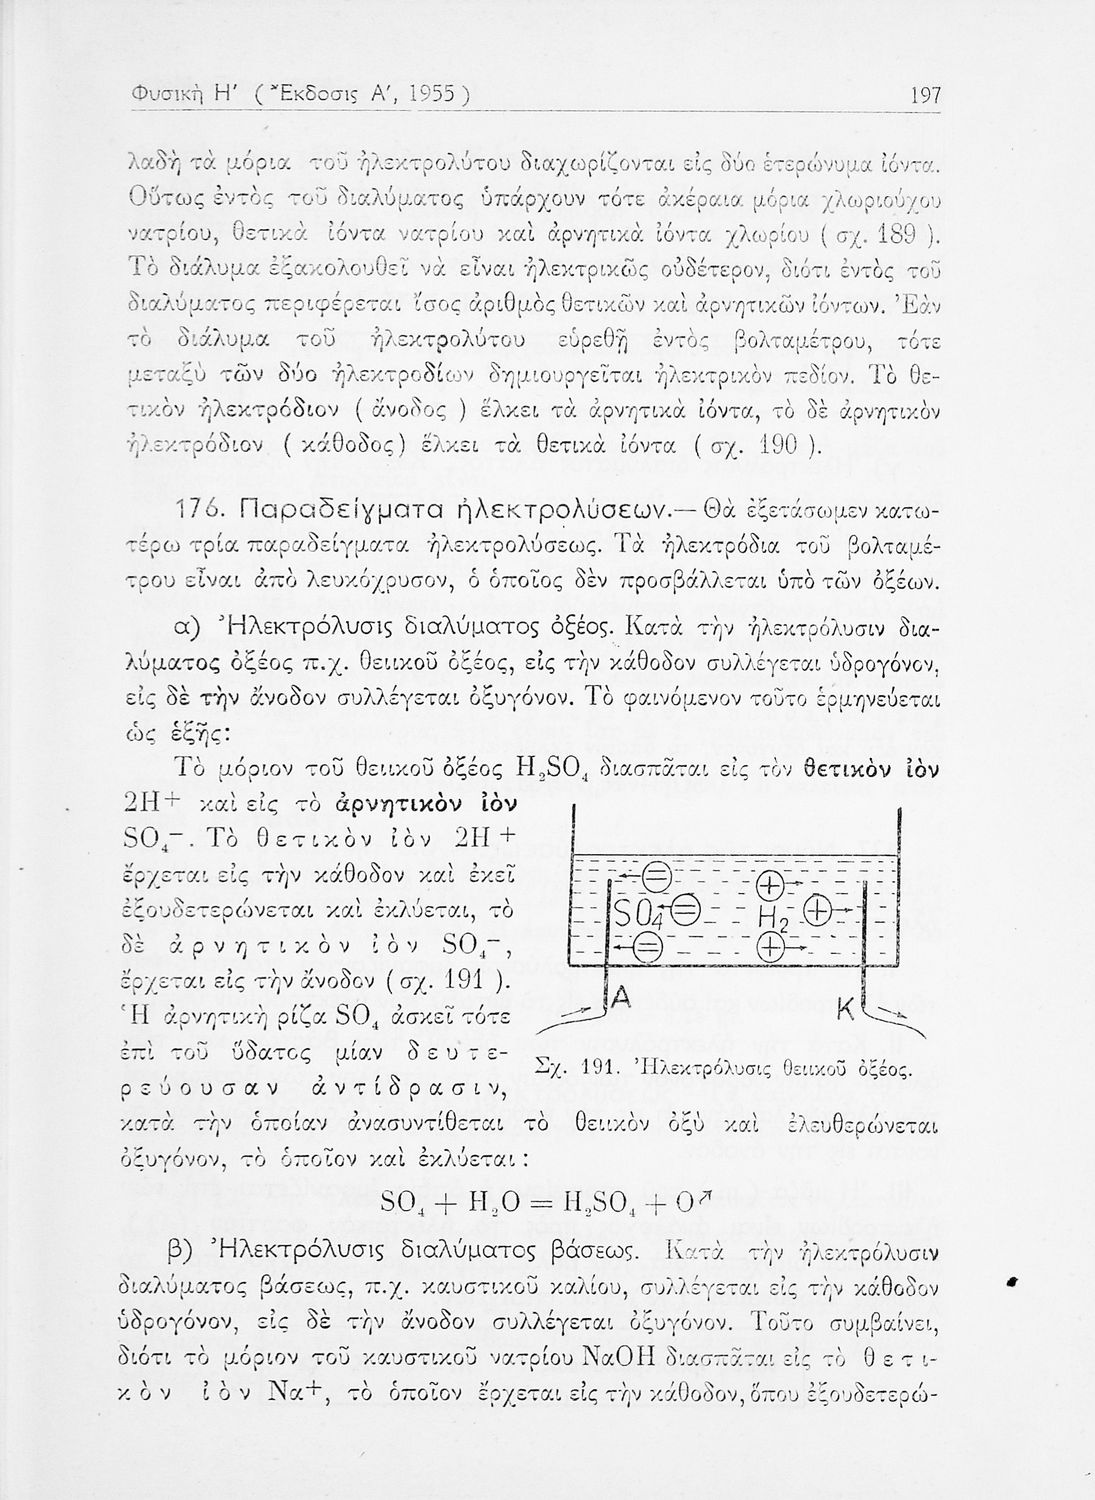 Φυσικὴ Η′ ( Ἔκδοσις Α′, 1955 ) 197
λαδὴ τὰ μόρια τοῦ ἠλεκτρολύτου διαχωρίζονται εἰς δύο ἑτερώνυμα ἰόντα.
Οὕτως ἐντὸς τοῦ διαλύματος ὑπάρχουν τότε ἀκέραια μόρια χλωριούχου
νατρίου, θετικὰ ἰόντα νατρίου καὶ ἀρνητικὰ ἰόντα χλωρίου ( σχ. 189 ).
Τὸ διάλυμα ἐξακολουθεῖ νὰ εἶναι ἠλεκτρικῶς οὐδέτερον, διότι ἐντὸς τοῦ
διαλύματος περιφέρεται ἴσος ἀριθμὸς θετικῶν καὶ ἀρνητικῶν ἰόντων. Ἐὰν
τὸ διάλυμα τοῦ ἠλεκτρολύτου εὑρεθῇ ἐντὸς βολταμέτρου, τότε
μεταξὺ τῶν δύο ἠλεκτροδίων δημιουργεῖται ἠλεκτρικὸν πεδίον. Τὸ θε-
τικὸν ἠλεκτρόδιον ( ἄνοδος ) ἕλκει τὰ ἀρνητικὰ ἰόντα, τὸ δὲ ἀρνητικὸν
ἠλεκτρόδιον ( κάθοδος) ἕλκει τὰ θετικὰ ἰόντα ( σχ. 190 ).
176. Παραδείγματα ἠλεκτρολύσεων.— Θὰ ἐξετάσωμεν κατω-
τέρω τρία παραδείγματα ἠλεκτρολύσεως. Τὰ ἠλεκτρόδια τοῦ βολταμέ-
τρου εἶναι ἀπὸ λευκόχρυσον, ὁ ὁποῖος δὲν προσβάλλεται ὑπὸ τῶν ὀξέων.
α) Ἠλεκτρόλυσις διαλύματος ὀξέος. Κατὰ τὴν ἠλεκτρόλυσιν δια-
λύματος ὀξέος π.χ. θειικοῦ ὀξέος, εἰς τὴν κάθοδον συλλέγεται ὑδρογόνον,
εἰς δὲ τὴν ἄνοδον συλλέγεται ὀξυγόνον. Τὸ φαινόμενον τοῦτο ἑρμηνεύεται
ὡς ἑξῆς:
Τὸ μόριον τοῦ θειικοῦ ὀξέος H₂SO₄ διασπᾶται εἰς τὸν θετικὸν ἰὸν
2H⁺ καὶ εἰς τὸ ἀρνητικὸν ἰὸν
SO₄⁻. Τὸ θετικὸν ἰὸν 2H⁺
ἔρχεται εἰς τὴν κάθοδον καὶ ἐκεῖ
ἐξουδετερώνεται καὶ ἐκλύεται, τὸ
δὲ ἀρνητικὸν ἰὸν SO₄⁻,
ἔρχεται εἰς τὴν ἄνοδον ( σχ. 191 ).
Ἡ ἀρνητικὴ ρίζα SO₄ ἀσκεῖ τότε
ἐπὶ τοῦ ὕδατος μίαν δευτε-
ρεύουσαν ἀντίδρασιν,
SO₄ H₂
A K
Σχ. 191. Ἠλεκτρόλυσις θειικοῦ ὀξέος.
κατὰ τὴν ὁποίαν ἀνασυντίθεται τὸ θειικὸν ὀξὺ καὶ ἐλευθερώνεται
ὀξυγόνον, τὸ ὁποῖον καὶ ἐκλύεται :
SO₄ + H₂O = H₂SO₄ + O↗
β) Ἠλεκτρόλυσις διαλύματος βάσεως. Κατὰ τὴν ἠλεκτρόλυσιν
διαλύματος βάσεως, π.χ. καυστικοῦ καλίου, συλλέγεται εἰς τὴν κάθοδον
ὑδρογόνον, εἰς δὲ τὴν ἄνοδον συλλέγεται ὀξυγόνον. Τοῦτο συμβαίνει,
διότι τὸ μόριον τοῦ καυστικοῦ νατρίου NaOH διασπᾶται εἰς τὸ θετι-
κὸν ἰὸν Na⁺, τὸ ὁποῖον ἔρχεται εἰς τὴν κάθοδον, ὅπου ἐξουδετερώ-